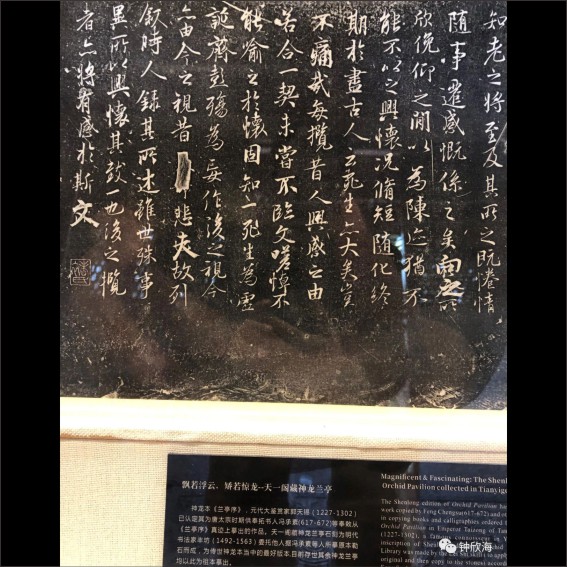 知老之將至及其所之既惓情
隨事遷感慨係之矣向之所
欣俛仰之間以為陳迹猶不
能不以之興懷況脩短隨化終
期於盡古人云死生亦大矣豈
不痛哉每攬昔人興感之由
若合一契未嘗不臨文嗟悼不
能喻之於懷固知一死生為虛
誕齊彭殤為妄作後之視今
亦由今之視昔悲夫故列
敘時人錄其所述雖世殊事
異所以興懷其致一也後之攬
者亦將有感於斯文
飘若浮云、矫若惊龙--天一阁藏神龙兰亭
神龙本《兰亭序》，元代大鉴赏家郭天锡（1227-1302）
已认定其为唐太宗时期供奉拓书人冯承素(617-672)等奉敕从
《兰亭序》真迹上摹出的作品。天一阁藏神龙兰亭石刻为明代
书法家丰坊（1492-1563）委托他人据冯承素等人所摹原本勒
石而成，为传世神龙本当中的最好版本.目前存世其他神龙兰亭
均以此为祖本摹出.
Magnificent & Fascinating: The
Orchid Pavilion collected in
The Shenlong edition of Orchid Pavilion
work copied by Feng Chengsu(617-672) and
in copying books and calligraphies ordered
Orchid Pavilion of Emperor Taizong of
(1227-1302), a famous connoisseur in
inscription of
Library was made by the to apply
original and then copy to the stones
钟欣海